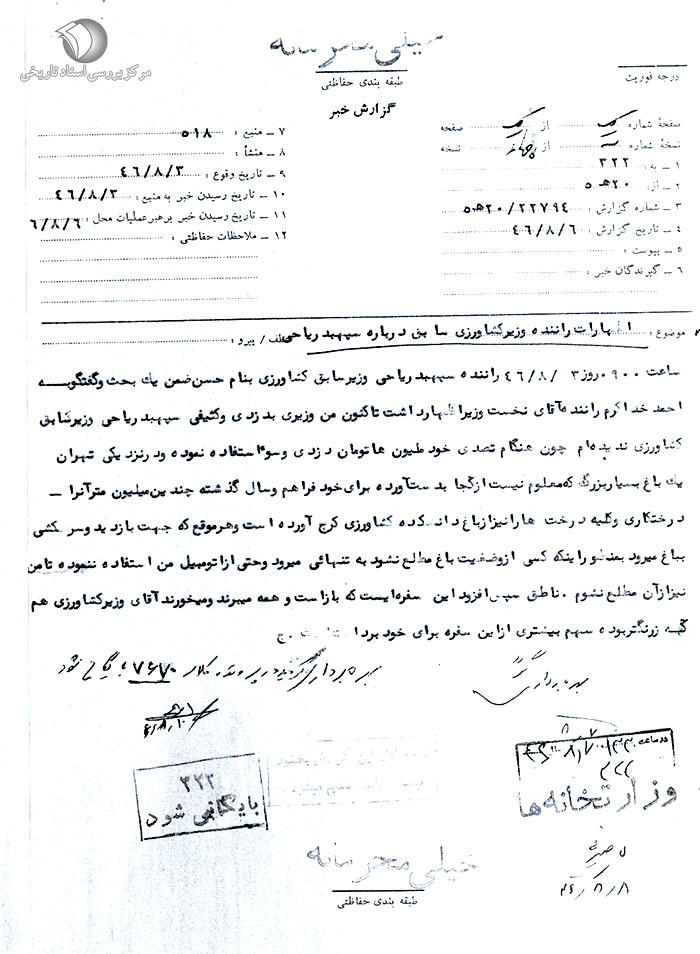 مرکز بررسی اسناد تاریخی
خیلی محرمانه
طبقه بندی حفاظتی
درجه فوریت
گزارش خبر
صفحه شماره یک از یک صفحه
نسخه شماره از چهار نسخه
۱ ـ به : ۳۲۲
۲ ـ از : ۲۰ هـ ۵
۳ ـ شماره گزارش : ۲۲۷۹۴/۲۰هـ۵
۴ ـ تاریخ گزارش : ۴۶/۸/۶
۵ ـ پیوست :
۶ ـ گیرندگان خبر :
۷ ـ منبع : ۵۱۸
۸ ـ منشأ :
۹ ـ تاریخ وقوع : ۴۶/۸/۳
۱۰ ـ تاریخ رسیدن خبر به منبع : ۴۶/۸/۳
۱۱ ـ تاریخ رسیدن خبر برهبر عملیات محل : ۶/۸/۶
۱۲ ـ ملاحظات حفاظتی :
موضوع : اظهارات راننده وزیر کشاورزی سابق درباره سپهبد ریاحی عطف / پیرو :
ساعت ۹۰۰ روز ۳ /۴۶/۸ راننده سپهبد ریاحی وزیر سابق کشاورزی بنام حسن ضمن یک بحث وگفتگو به
احمد خداکرم راننده آقای نخست وزیر اظهار داشت تاکنون من وزیری بدزدی وکثیفی سپهبد ریاحی وزیر سابق
کشاورزی ندیده ام چون هنگام تصدی خود ملیون ها تومان دزدی وسوء استفاده نموده ودر نزدیکی تهران
یک باغ بسیار بزرگ که معلوم نیست از کجا بدست آورده برای خود فراهم وسال گذشته چندین میلیون متر آنرا ـ
درختکاری وکلیه درخت ها را نیز از باغ دانشکده کشاورزی کرج آورده است وهر موقع که جهت بازدید وسرکشی
بباغ میرود بمنظور اینکه کسی از وضعیت باغ مطلع نشود به تنهائی میرود وحتی از اتومبیل من استفاده ننموده تا من
نیز از آن مطلع نشوم . ناطق سپس افزود این سفره ایست که باز است و همه میبرند ومیخورند آقای وزیر کشاورزی هم
که زرنگتر بوده سهم بیشتری از این سفره برای خود برداشته است . ج
بهره برداری گردید در پرونده کلاسه ۷۶۷۰ بایگانی شود
بهره برداری
۳۲۲
بایگانی شود
وزارتخانه ها
۴۶/۸/۸
خیلی محرمانه
طبقه بندی حفاظتی